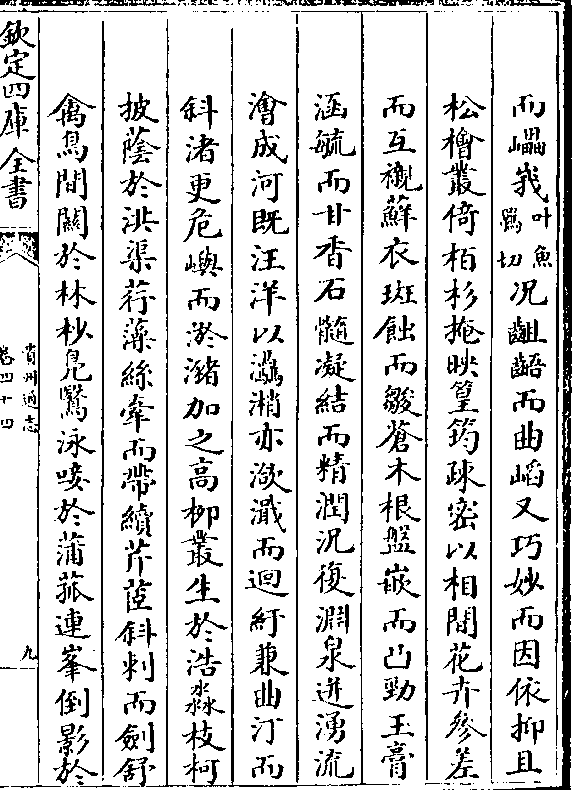 而𡾋峩叶魚羈切况齟齬而曲崤又巧妙而因依抑且
松檜叢倚栢杉掩映篁筠疎密以相間花卉參差
而互襯蘚衣斑蝕而皴蒼木根盤嵌而凸勁玉膏
涵毓而甘香石髓凝結而精潤況復淵泉迸湧流
澮成河既汪洋以灊㴥亦潋灎而迴紆兼曲汀而
斜渚更危嶼而淤瀦加之高栁叢生於浩淼枝柯
披蔭於洪渠荇藻絲牽而帶續芹茝斜刺而劍舒
禽鳥間關於林杪鳧鷖泳唼於蒲菰連峯倒影於
欽定四庫全書
貴州通志
卷四十四
九